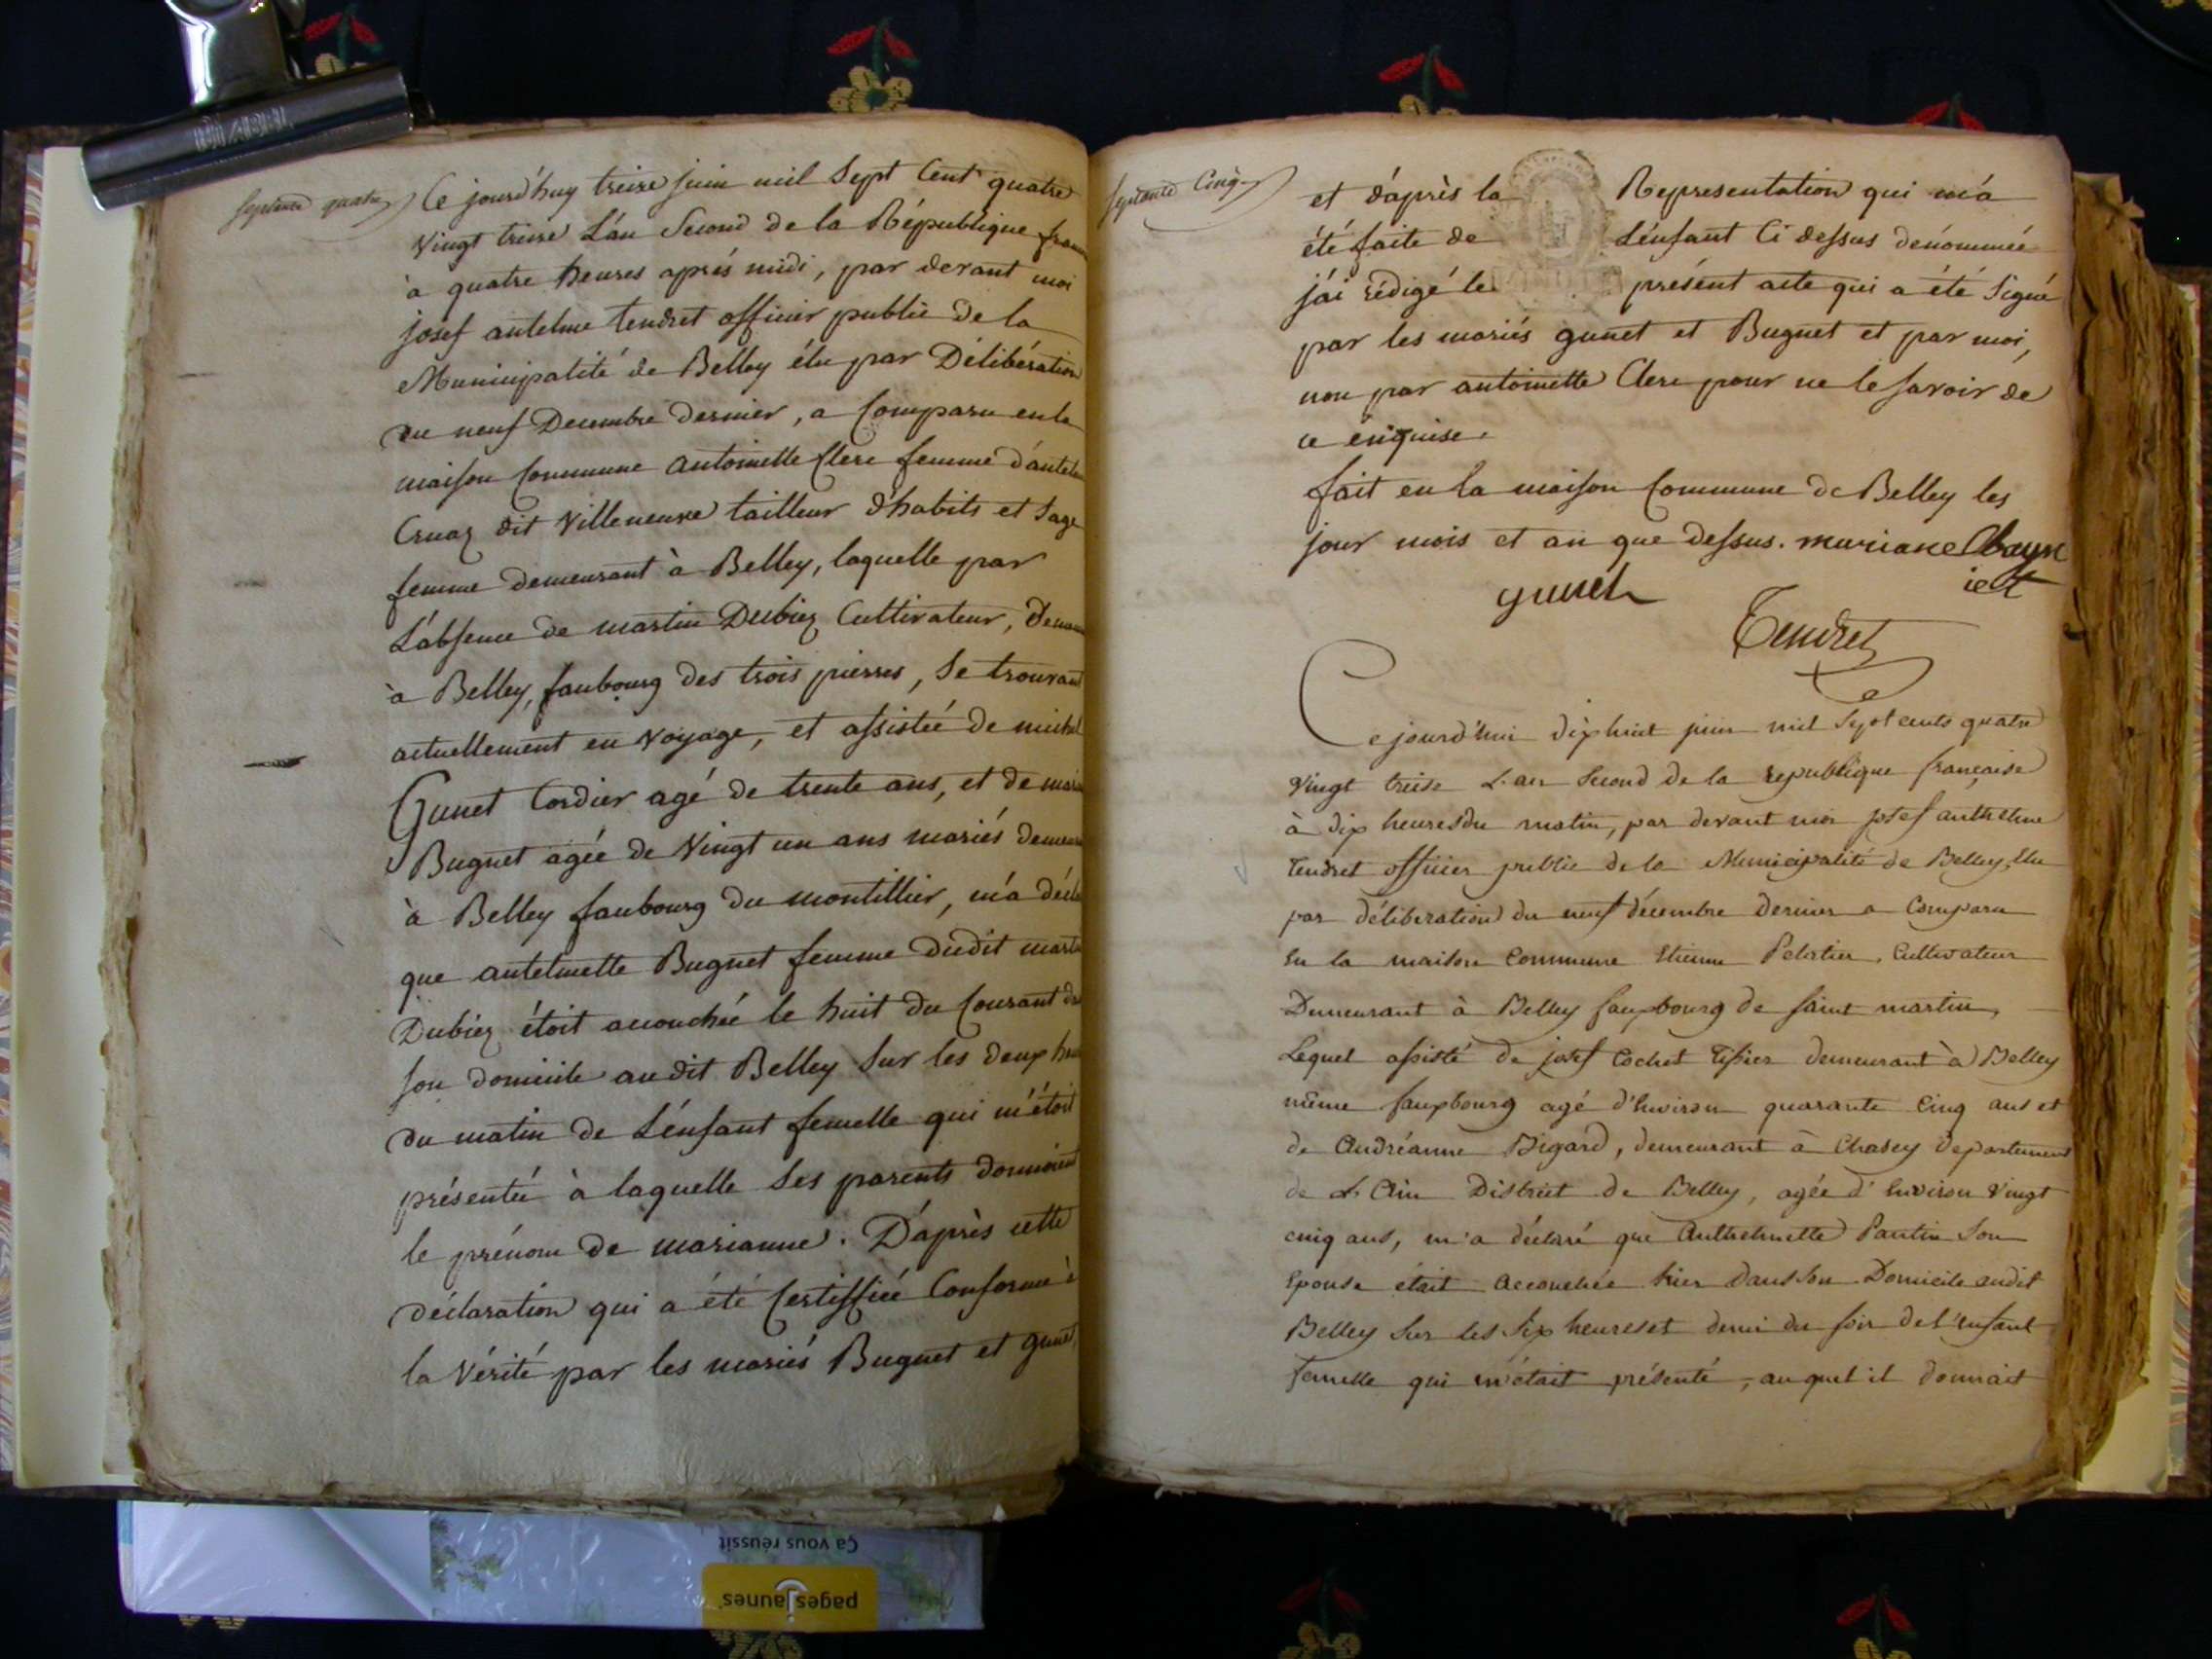 septante quatre
Ce jourd'huy treize juin mil Sept Cent quatre
Vingt treize L'an Second de la République fran
à quatre heures aprés midi, par devant moi
josef antelme tendret officier public de la
Municipalité de Belley élu par Délibération
du neuf Decembre dernier, a Comparu en la
maison Commune antoinette Clerc femme d'antel
Cruaz dit Villeneuve tailleur d'habits et Sage
femme demeurant à Belley, laquelle par
L'absence de martin Dubiez Cultivateur, demeu
à Belley, faubourg des trois pierres, Se trouvant
actuellement en Voyage, et assistée de michel
Gunet Cordier agé de trente ans, et de maria
Bugnet agée de Vingt un ans mariés demeur
à Belley faubourg du montillier, m'a décla
que antelmette Bugnet femme dudit martin
Dubiez étoit accouchée le huit du Courant da
son domicile audit Belley Sur les deux heu
du matin de L'énfant femelle qui m'étoit
présentée à laquelle Ses parents donnoient
le prénom de marianne. D'aprés cette
déclaration qui a été Certiffiée Conforme à
la Vérité par les mariés Bugnet et gunet,
septante Cinq
et d'aprés la Representation qui m'a
été faite de L'énfant Ci dessus denommée
j'ai rédigé le présent acte qui a été Signé
par les mariés gunet et Bugnet et par moi,
non par antoinette Clerc pour ne le savoir de
ce énquise.
fait en la maison Commune de Belley les
jour mois et an que dessus. mariane
gunet
Tendret
Ce jourd'hui dix huit juin mil Sept cents quatre
Vingt treize L'an Second de la republique française
à dix heures du matin, par devant moi josef anthelme
tendret officier public de la Municipalité de Belley, Elu
par délibération du neuf décembre dernier a Comparu
En la maison Commune Etienne Peletier, Cultivateur
Demeurant à Belley fauxbourg de saint martin,
Lequel assisté de josef Cochet Tissier demeurant à Belley
même fauxbourg agé d'Environ quarante Cinq ans et
de Andréanne Bigard, demeurant à Chasey Departement
de L'Ain District de Belley, agée d'Environ Vingt
cinq ans, m'a déclaré que Anthelmette Pantin Son
Epouse était accouchée hier dans Son Domicile audit
Belley Sur les Six heures et demi du soir de l'enfant
femelle qui m'était présenté, auquel il donnait
Ça vous réussit
pagesjaunes